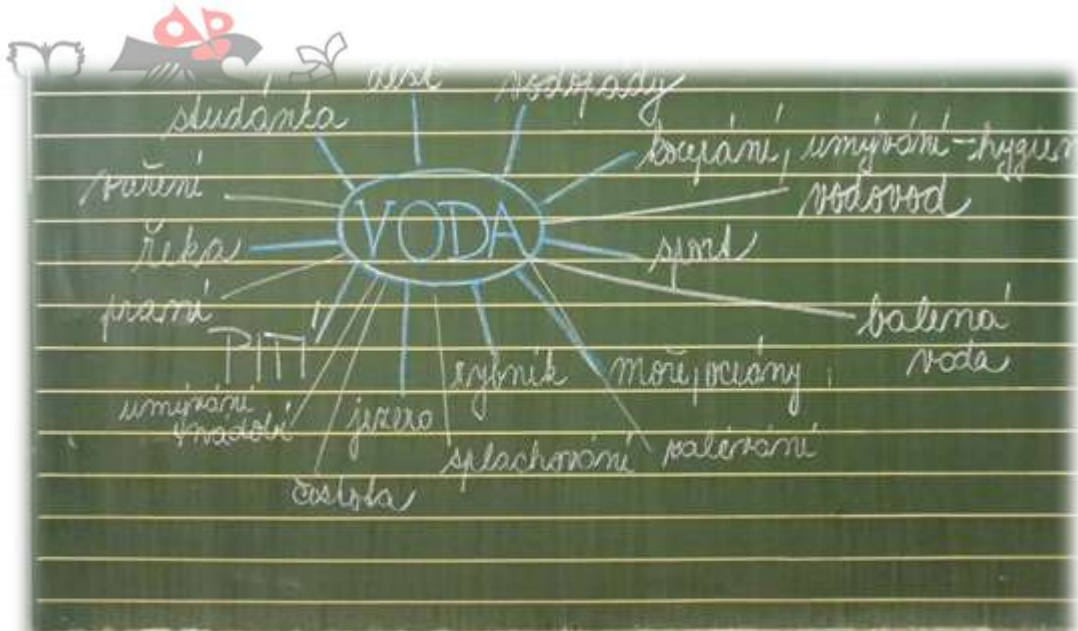 déšť
vodopády
studánka
koupání, umývání - hygien
vaření
VODA
vodovod
řeka
sport
praní
balená
voda
PITÍ
rybník
moře, oceány
umývání
nádobí
jezero
splachování
zalévání
čistota